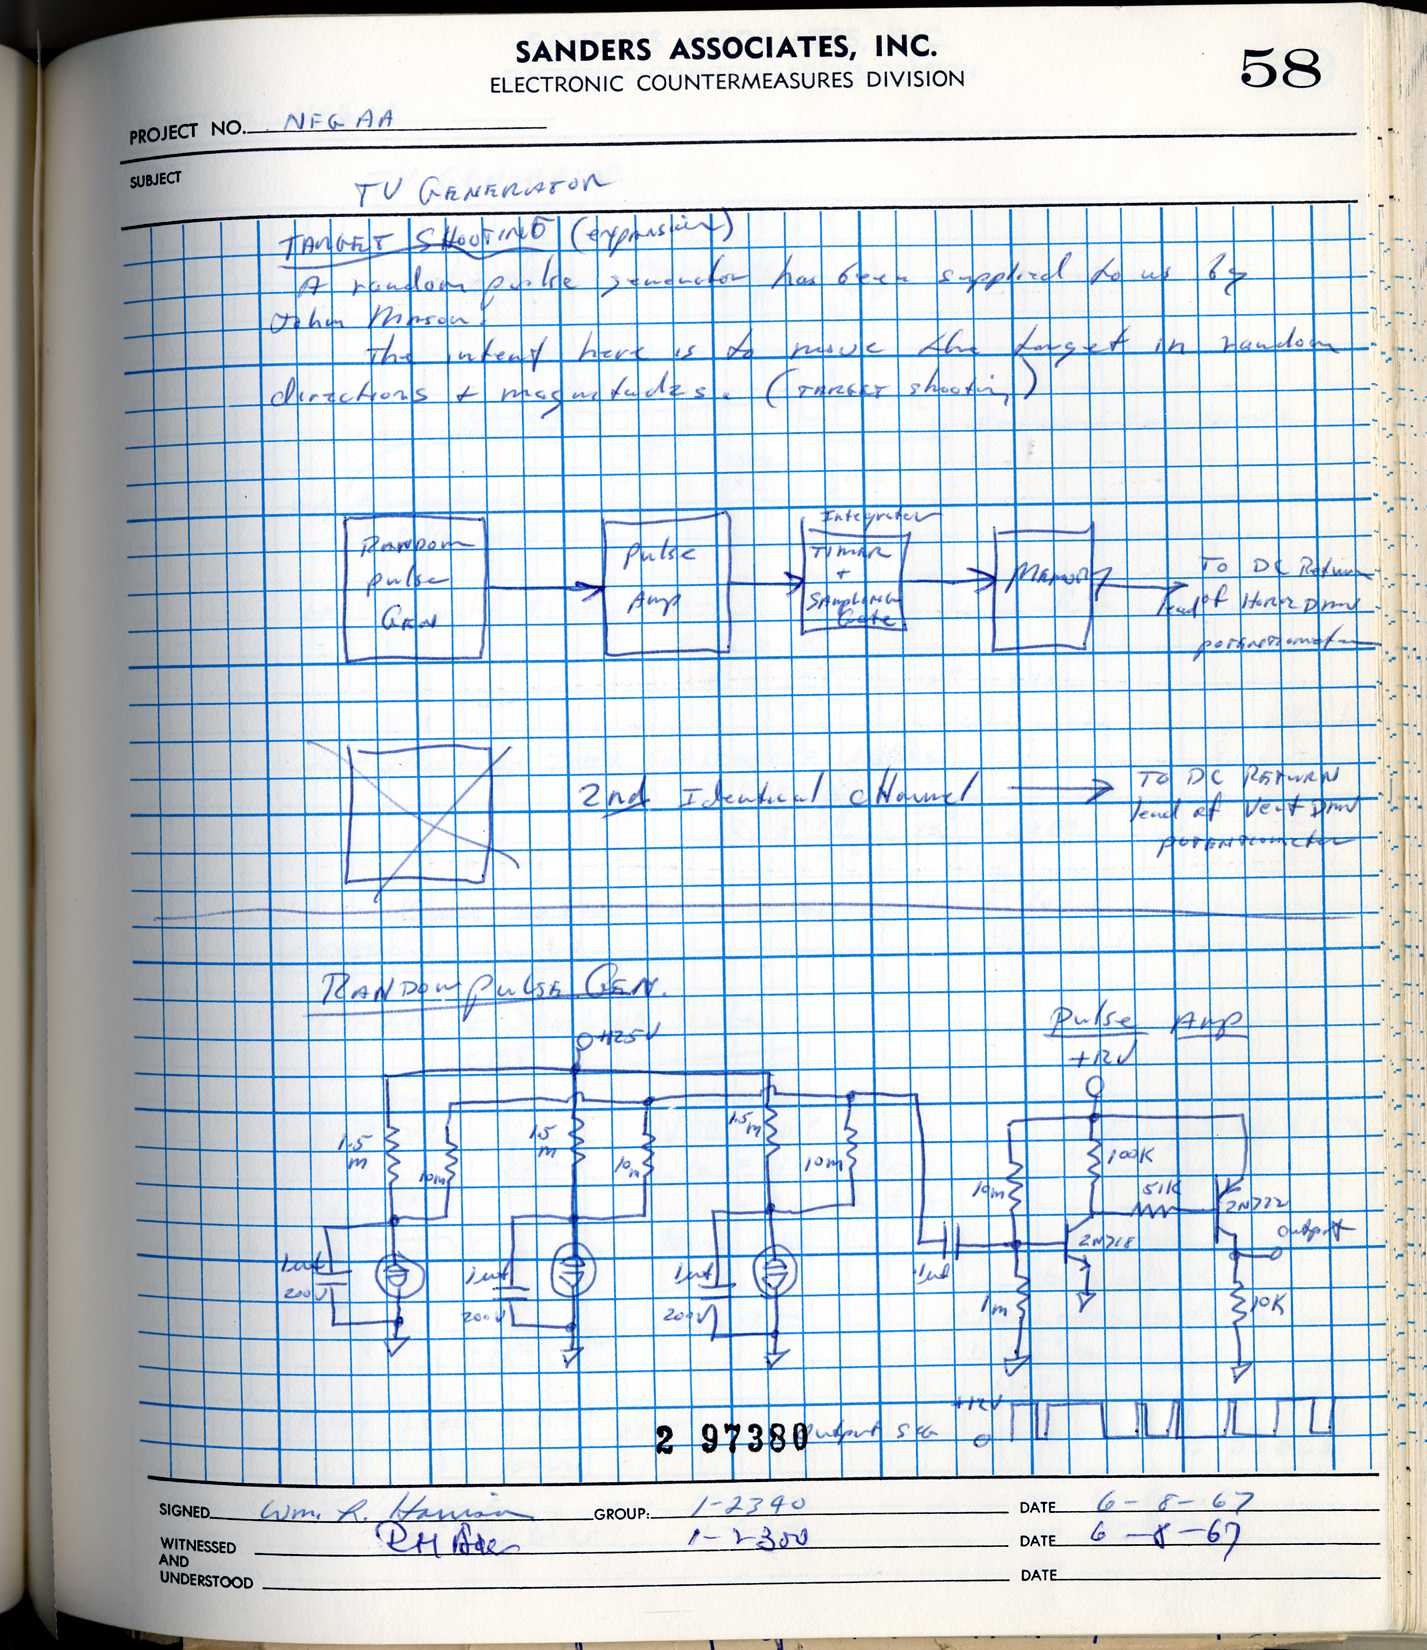 SANDERS ASSOCIATES, INC.
ELECTRONIC COUNTERMEASURES DIVISION
58
PROJECT NO. NFGAA
SUBJECT
TV GENERATOR
TARGET SHOOTING (expansion)
A random pulse generator has been supplied to us by
John Mason.
The intent here is to move the target in random
directions + magnitudes. (TARGET shooting)
Random
pulse
Gen
Pulse
Amp
Integrator
TIMER
+
SAmpling
Gate
Memory
To DC Return
lead of Horiz Driv
potentiometer
2nd Identical cHannel
TO DC RETURN
lead of Vert Driv
potentiometer
RANDOM PULSE GEN.
Pulse Amp
+125V
+12V
1.5
m
10m
1.5
m
10m
1.5m
10m
10m
100K
51K
2N722
2N718
output
1uf
200V
1uf
200V
1uf
200V
.1uf
1m
10K
+12V
0
2 97380 output
SIGNED Wm. R. Harrison GROUP: 1-2390 DATE 6-8-67
WITNESSED
AND
UNDERSTOOD
RH Baer 1-2300 DATE 6-8-67
DATE